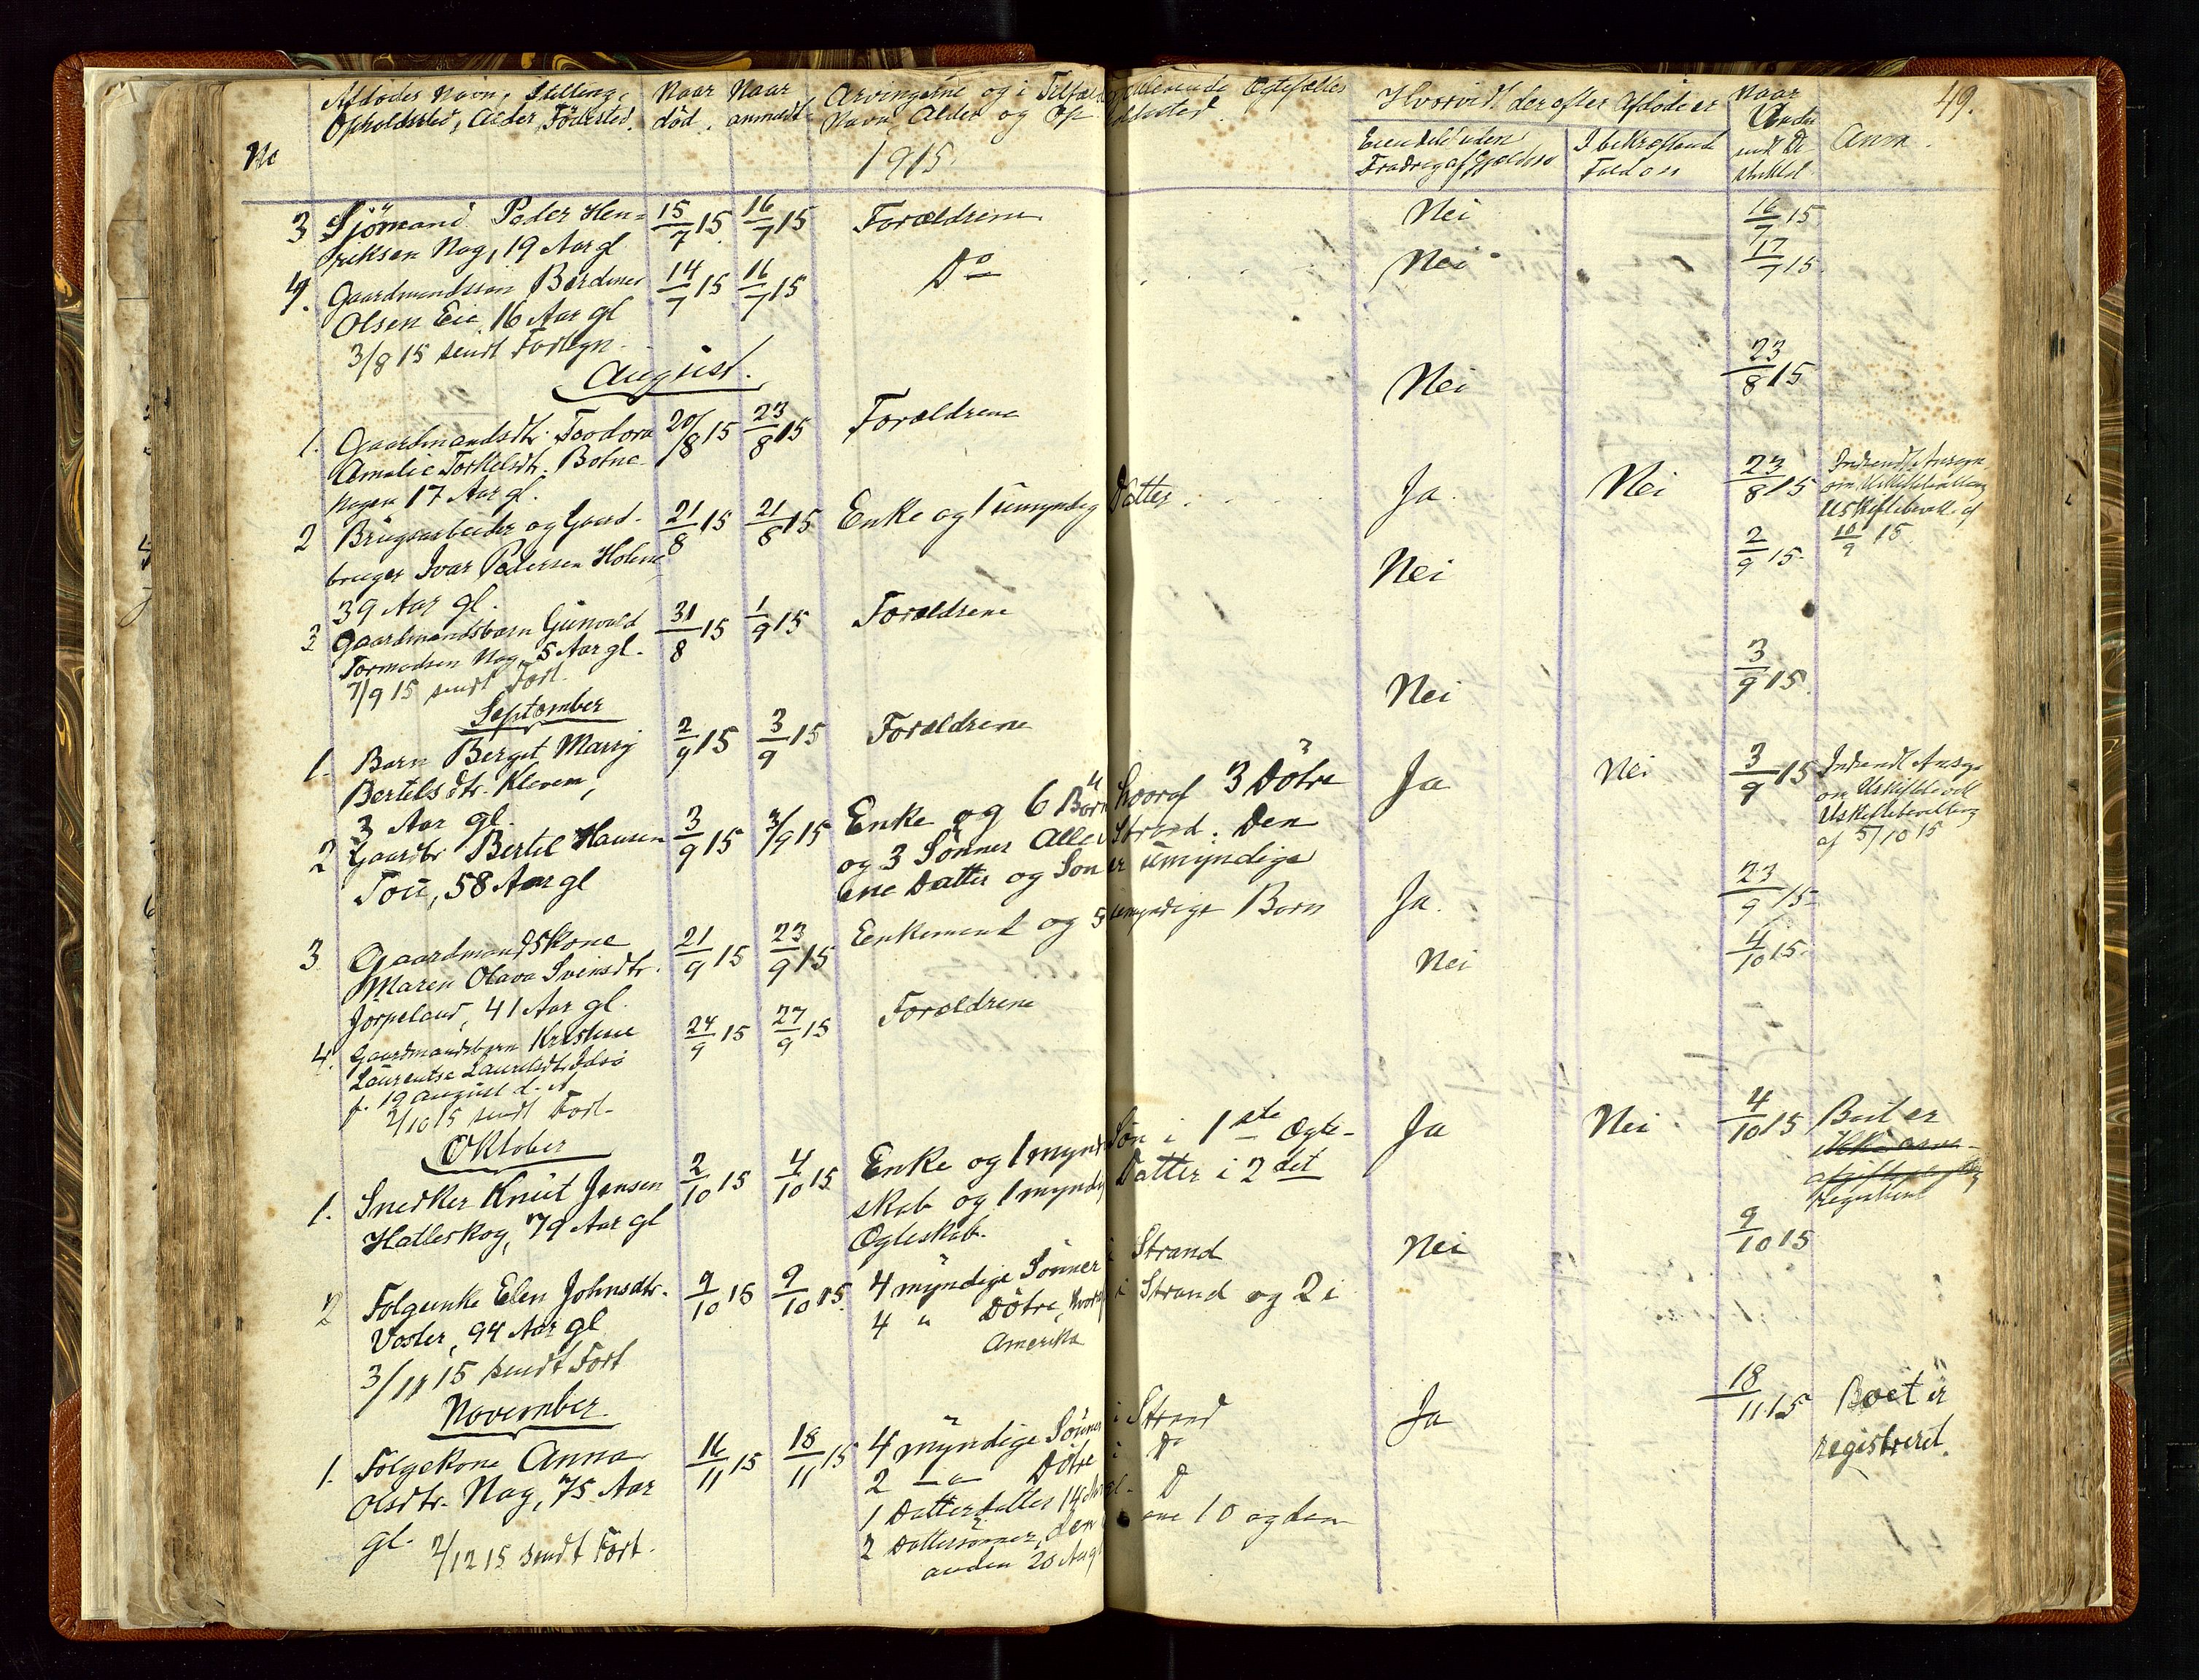 49.
No
Afdødes Navn, Stilling,
Opholdssted, Alder, Fødested.
Naar død.
Naar anmeldt
Arvingerne og i Tilfælde Ægtefælles
Navn, Alder og Opholdssted.
1915.
Hvorvidt der efter Afdøde er
Eiendele uden
Fradrag af Gjælden
I bekræftende
Fald om
Naar
Anm.
3 Sjömand Peder Hen= 15/7 15 16/7 15 Forældrene Nei 16/7 15
riksen Nag, 19 Aar gl
4. Gaardmandssøn Berdines 14/7 15 16/7 15 Do Nei 17/7 15
Olsen Eie, 16 Aar gl
3/8 15 sendt Fortegn.
August.
1. Gaardmandsdtr. Teodora 20/8 15 23/8 15 Forældrene Nei 23/8 15
Amalie Torkelsdtr. Botne
hagen 17 Aar gl.
2 Brugsarbeider og Gaard- 21/8 15 21/8 15 Enke og 1 umyndig Datter. Ja Nei 23/8 15 Indsendt Ansøgn
om Uskiftebevilling
Uskiftebevill. af
10/9 15
bruger Ivar Pedersen Holene
39 Aar gl.
3 Gaardmandsbarn Gunvald 31/8 15 1/9 15 Forældrene Nei 2/9 15
Tormodsen Nag, 5 Aar gl.
7/9 15 sendt Fort.
September
1. Barn Berget Marij 2/9 15 3/9 15 Forældrene Nei 3/9 15
Bertelsdtr. Kleven,
3 Aar gl.
2 Gaardbr Bertel Hansen 3/9 15 3/9 15 Enke og 6 Børn hvoraf 3 Dötre Ja Nei 3/9 15 Indsendt Ansøgn
om Uskiftebevill
Uskiftebevilling
af 5/10 15
Tou, 58 Aar gl og 3 Sønner Alle i Strand. Den
ene Datter og Søn er umyndige
3 Gaardmandskone 21/9 15 23/9 15 Enkemand og 5 umyndige Børn Ja. 23/9 15
Maren Olava Svensdtr.
Jörpeland, 41 Aar gl.
4. Gaardmandsbarn Kristene 24/9 15 27/9 15 Forældrene Nei 4/10 15
Laurentse Lauritsdtr. Idsö
f. 19 August d. A
2/10 15 sendt Fort.
Oktober
1. Snedker Knut Jensen 2/10 15 4/10 15 Enke og 1 mynd Søn i 1ste Ægte- Ja Nei 4/10 15 Boet er
ikke
registreret
Hatleskog, 79 Aar gl skab og 1 myndig Datter i 2det
Ægteskab.
2 Folgeenke Elen Johnsdtr. 9/10 15 9/10 15. 4 myndige Sønner i Strand Nei 9/10 15
Voster, 94 Aar gl 4 " Dötre, hvoraf i Strand og 2 i
Amerika
3/11 15 sendt Fort
November.
1. Folgekone Anna 16/11 15 18/11 15 4 myndige Sønner i Strand Ja 18/11 15 Boet er
registreret.
Olsdtr. Nag, 75 Aar 2 — " — Dötre i Do
gl. 1 Datterdatter 14 Aar gl. Do
2 Dattersönner, den ene 10 og den
anden 20 Aar gl
2/12 15 sendt Fort.